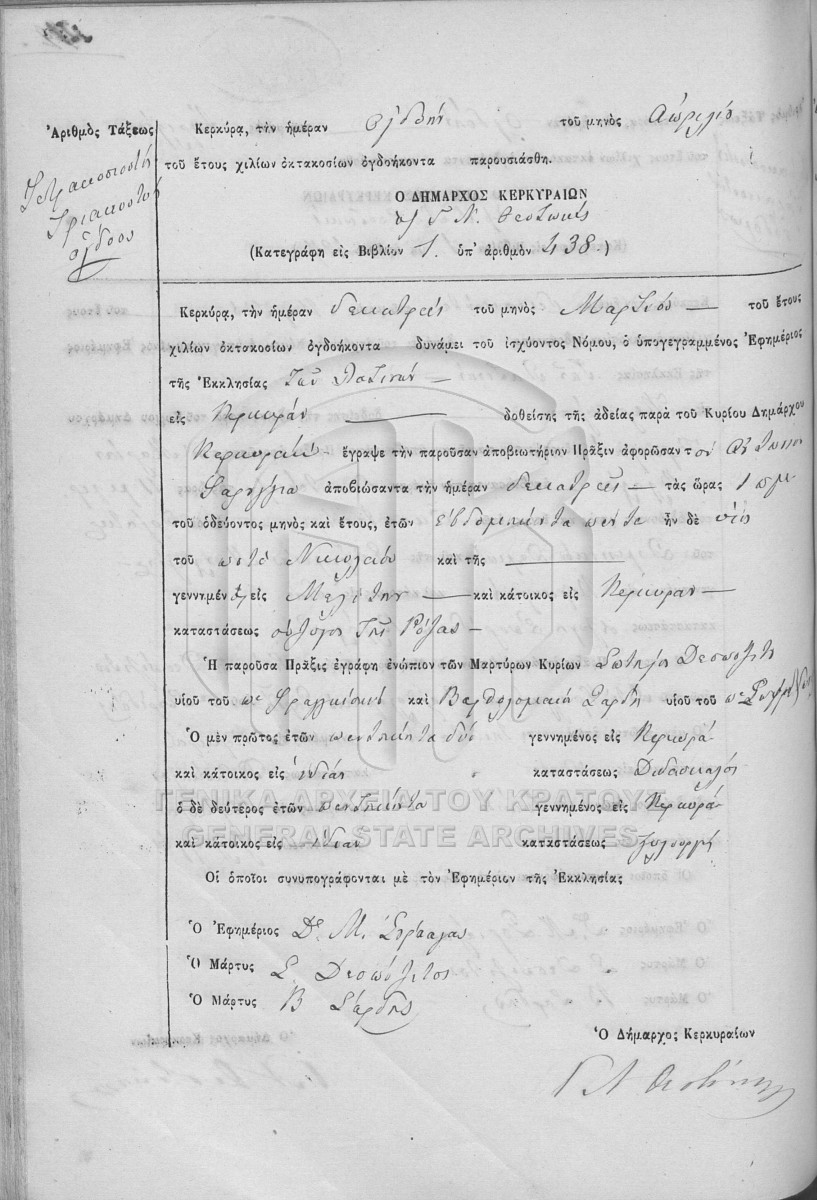 Ἀριθμὸς Τάξεως
Τετρακοσιοστὴ
Τριακοστὴ
ὀγδόου
Κερκύρα, τὴν ἡμέραν ὀγδόην τοῦ μηνὸς Ἀπριλίου
τοῦ ἔτους χιλίων ὀκτακοσίων ὀγδοήκοντα παρουσιάσθη.
Ὁ ΔΗΜΑΡΧΟΣ ΚΕΡΚΥΡΑΙΩΝ
Γ Ν. Θεοτόκης
(Κατεγράφη εἰς Βιβλίον 1. ὑπ' ἀριθμὸν 438.)
Κερκύρα, τὴν ἡμέραν δεκατρεῖς τοῦ μηνὸς Μαρτίου τοῦ ἔτους
χιλίων ὀκτακοσίων ὀγδοήκοντα δυνάμει τοῦ ἰσχύοντος Νόμου, ὁ ὑπογεγραμμένος Ἐφημέριος
τῆς Ἐκκλησίας τῶν Λατίνων
εἰς Κερκυραν δοθείσης τῆς ἀδείας παρὰ τοῦ Κυρίου Δημάρχου
ἔγραψε τὴν παροῦσαν ἀποβιωτήριον Πρᾶξιν ἀφορῶσαν τὸν Ἀντωνιον
ἀποβιώσαντα τὴν ἡμέραν δεκατρεῖς τὰς ὥρας 1 πμ
τοῦ ὁδεύοντος μηνὸς καὶ ἔτους, ἐτῶν ἑβδομήκοντα πεντε ἦν δὲ υἱὸς
τοῦ ποτὲ Νικολαου καὶ τῆς
γεννημέν εἰς Μελίτην καὶ κάτοικος εἰς Κερκυραν
καταστάσεως σύζυγος τῆς Ρόζας
Ἡ παροῦσα Πρᾶξις ἐγράφη ἐνώπιον τῶν Μαρτύρων Κυρίων Σωτηρίου Δεσποζίτο
υἱοῦ τοῦ πε Φραγκίσκου καὶ Βαρθολομαίου Σαρδη υἱοῦ τοῦ πε
Ὁ μὲν πρῶτος ἐτῶν πεντήκοντα δύο γεννημένος εἰς Κερκυρα
καὶ κάτοικος εἰς ἰδίαν καταστάσεως Διδασκαλος
ὁ δὲ δεύτερος ἐτῶν πεντήκοντα γεννημένος εἰς Κερκυρα
καὶ κάτοικος εἰς ἰδίαν καταστάσεως ξυλουργὸς
Οἱ ὁποῖοι συνυπογράφονται μὲ τὸν Ἐφημέριον τῆς Ἐκκλησίας
Ὁ Ἐφημέριος Δ. Μ.
Ὁ Μάρτυς Σ. Δεσποζίτος
Ὁ Μάρτυς Β Σάρδης
Ὁ Δήμαρχος Κερκυραίων
Γ Ν Θεοτόκης
ΓΕΝΙΚΑ ΑΡΧΕΙΑ ΤΟΥ ΚΡΑΤΟΥΣ
GENERAL STATE ARCHIVES